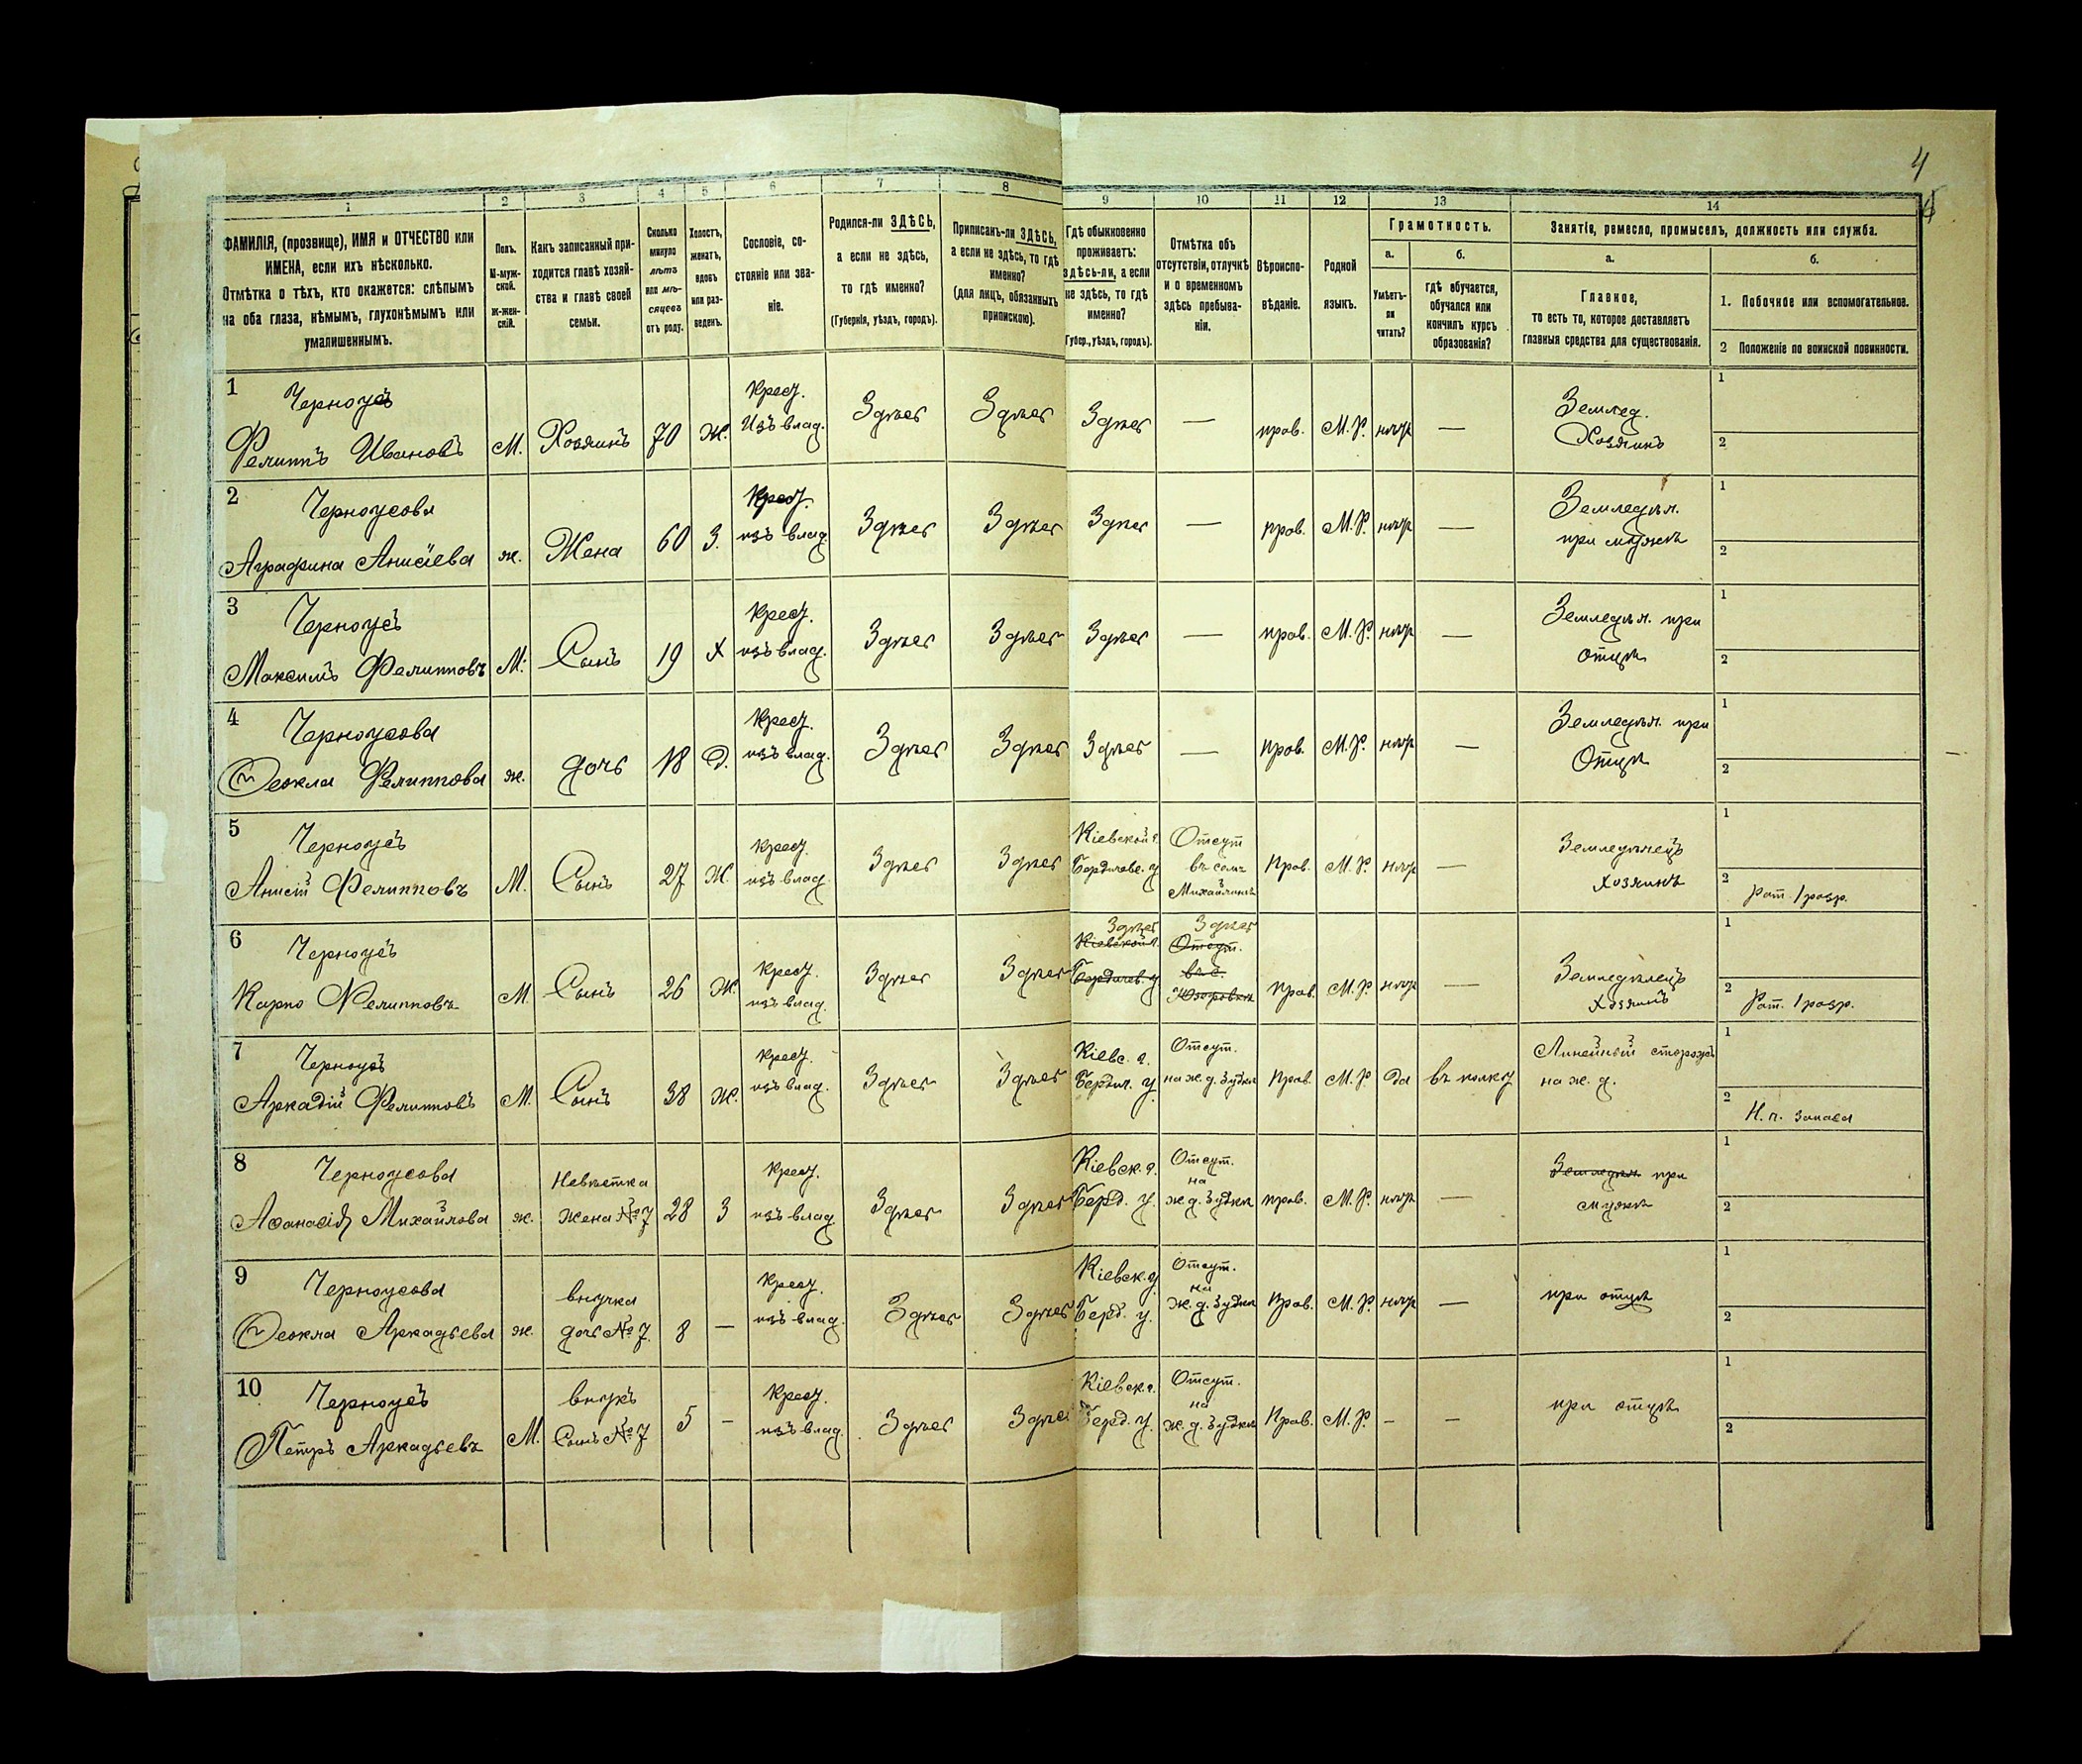 4
1 2 3 4 5 6 7 8 9 10 11 12 13 14
ФАМИЛІЯ, (прозвище), ИМЯ и ОТЧЕСТВО или
ИМЕНА, если ихъ нѣсколько.
Отмѣтка о тѣхъ, кто окажется: слѣпымъ
на оба глаза, нѣмымъ, глухонѣмымъ или
умалишеннымъ.
Полъ.
М-муж-
ской.
Ж-жен-
скій.
Какъ записанный при-
ходится главѣ хозяй-
ства и главѣ своей
семьи.
Сколько
минуло
лѣтъ
или мѣ-
сяцевъ
отъ роду.
Холостъ,
женатъ,
вдовъ
или раз-
веденъ.
Сословіе, со-
стояніе или зва-
ніе.
Родился-ли ЗДѢСЬ,
а если не здѣсь,
то гдѣ именно?
(Губернія, уѣздъ, городъ).
Приписанъ-ли ЗДѢСЬ,
а если не здѣсь, то гдѣ
именно?
(для лицъ, обязанныхъ
припискою).
Гдѣ обыкновенно
проживаетъ:
здѣсь-ли, а если
не здѣсь, то гдѣ
именно?
Губер., уѣздъ, городъ).
Отмѣтка объ
отсутствіи, отлучкѣ
и о временномъ
здѣсь пребыва-
ніи.
Вѣроиспо-
вѣданіе.
Родной
языкъ.
Грамотность.
а.
Умѣетъ-
ли
читать?
б.
гдѣ обучается,
обучался или
кончилъ курсъ
образованія?
Занятіе, ремесло, промыселъ, должность или служба.
а.
Главное,
то есть то, которое доставляетъ
главныя средства для существованія.
б.
1. Побочное или вспомогательное.
2 Положеніе по воинской повинности.
1 Черноусъ
Филиппъ Ивановъ М. Хозяинъ 70 Ж.
Крест.
Изъ влад.
Здѣсь Здѣсь Здѣсь — прав. М.Р. нѣтъ —
Землед.
Хозяинъ
1
2
2 Черноусова
Аграфина Анисіева ж. Жена 60 З.
Крест.
изъ влад.
Здѣсь Здѣсь Здѣсь — прав. М.Р. нѣтъ —
Земледѣл.
при мужѣ
1
2
3 Черноусъ
Максимъ Филипповъ М. Сынъ 19 Х
Крест.
изъ влад.
Здѣсь Здѣсь Здѣсь — прав. М.Р. нѣтъ —
Земледѣл. при
отцѣ
1
2
4 Черноусова
Ѳеокла Филиппова ж. дочь 18 Д.
Крест.
изъ влад.
Здѣсь Здѣсь Здѣсь — прав. М.Р. нѣтъ —
Земледѣл. при
Отцѣ
1
2
5 Черноусъ
Анисій Филипповъ М. Сынъ 27 Ж.
Крест.
изъ влад.
Здѣсь Здѣсь
Кіевской г.
Бердичевс. у
Отсут
въ селѣ
Прав. М.Р. нѣтъ —
Земледѣлецъ
хозяинъ
1
2 Рат. 1 разр.
6 Черноусъ
Карпо Филипповъ М. Сынъ 26 Ж.
Крест.
изъ влад.
Здѣсь Здѣсь
Здѣсь
Кіевской г.
Бердичев. у
Здѣсь
Отсут.
въ с.
Прав. М.Р. нѣтъ —
Земледѣлецъ
Хозяинъ
1
2 Рат. 1 разр.
7 Черноусъ
Аркадій Филипповъ М. Сынъ 38 Ж.
Крест.
изъ влад.
Здѣсь Здѣсь
Кіевс. г.
Бердич. у.
Отсут.
на ж. д. будкѣ
Прав. М.Р. да въ полку
Линейный сторожъ
на ж. д.
1
2 Н. ч. запаса
8 Черноусова
Аѳанасія Михайлова ж.
Невѣстка
жена № 7 28 З
Крест.
изъ влад.
Здѣсь Здѣсь
Кіевск. г.
Берд. у.
Отсут.
на
ж. д. будкѣ
прав. М.Р. нѣтъ —
Земледѣл. при
мужѣ
1
2
9 Черноусова
Ѳеокла Аркадьева ж.
внучка
дочь № 7. 8 —
Крест.
изъ влад.
Здѣсь Здѣсь
Кіевск. г.
Берд. у.
Отсут.
на
ж. д. будкѣ
Прав. М.Р. нѣтъ —
при отцѣ
1
2
10 Черноусъ
Петръ Аркадьевъ М.
внукъ
Сынъ № 7 5 —
Крест.
изъ влад.
Здѣсь Здѣсь
Кіевск. г.
Берд. у.
Отсут.
на
ж. д. будкѣ
Прав. М.Р. — —
при отцѣ
1
2